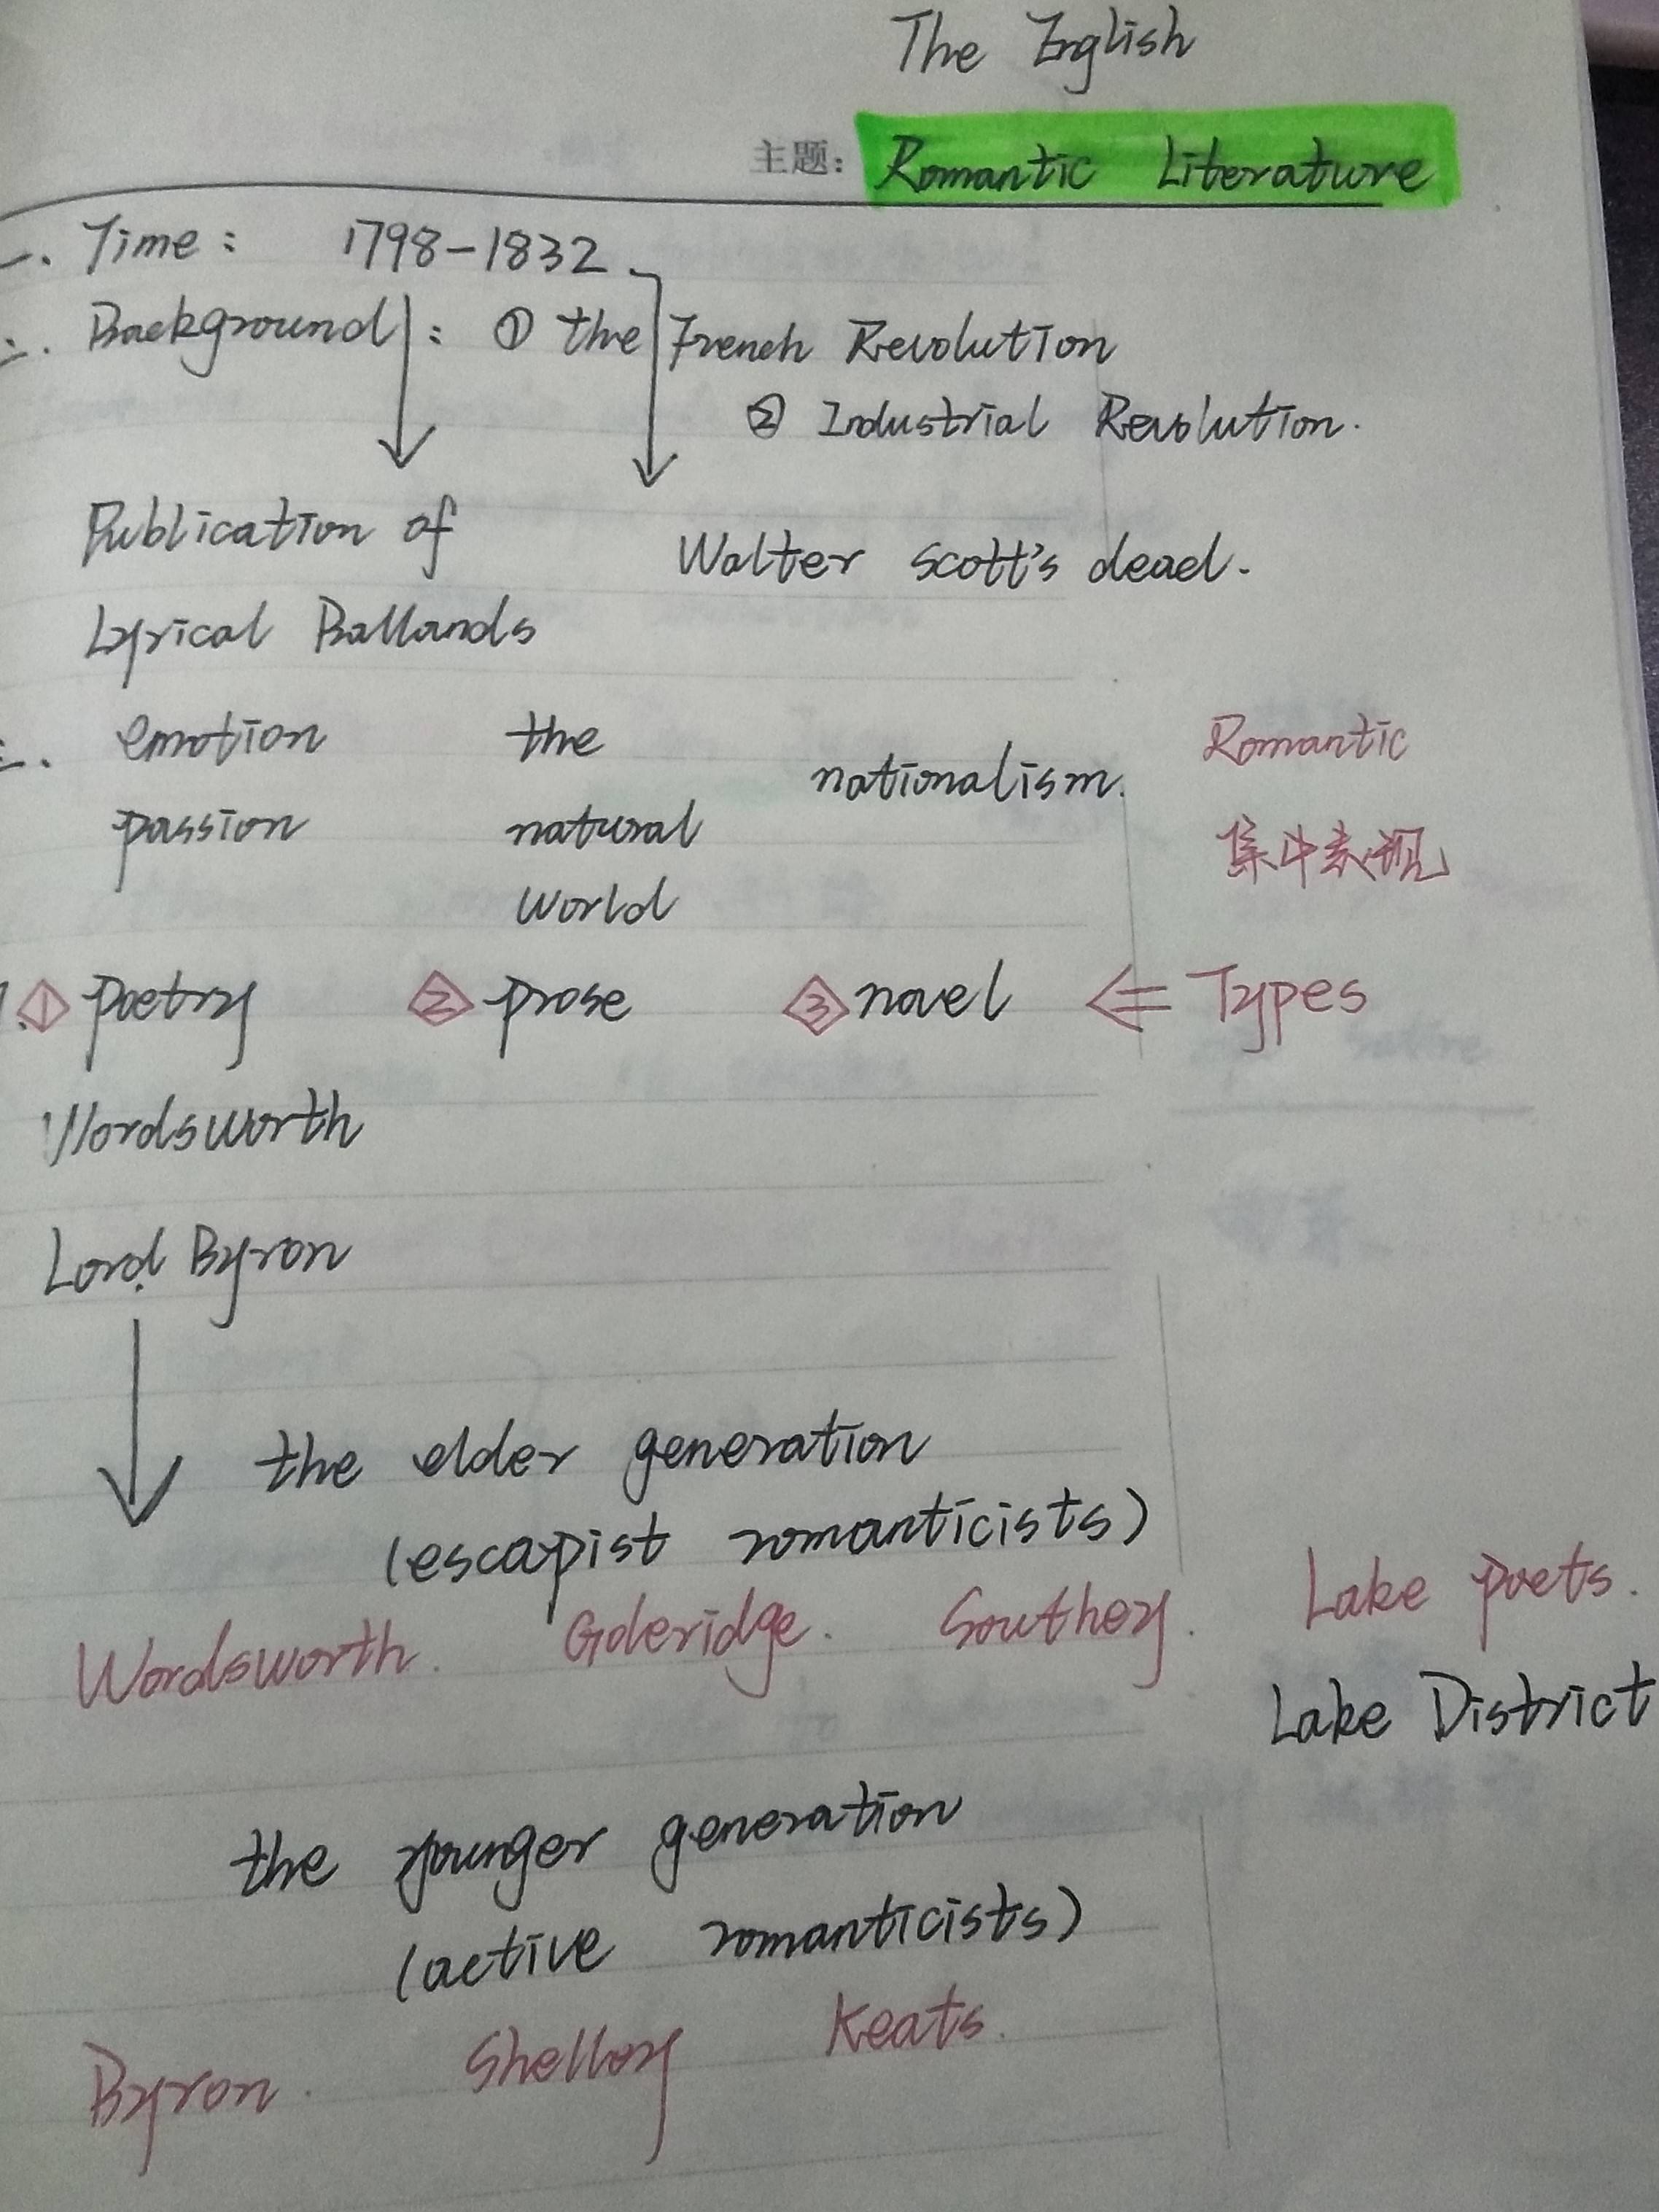 The English
主题: Romantic Literature
一. Time: 1798-1832
二. Background: ① the French Revolution
② Industrial Revolution.
Publication of
Lyrical Ballands
Walter Scott's dead.
三. emotion the nationalism. Romantic
passion natural 集中表现
world
① poetry ② prose ③ novel ⇐ Types
Wordsworth
Lord Byron
the elder generation
(escapist romanticists)
Wordsworth. Goleridge. Southey. Lake poets.
Lake District
the younger generation
(active romanticists)
Byron. Shelley Keats.